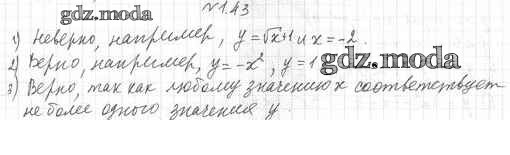 №1.43
gdz.moda
1) Неверно, например, y=√x+1 и x=-2.
2) Верно, например, y=-x², y=1
gdz.moda
3) Верно, так как любому значению x соответствует
не более одного значения y.